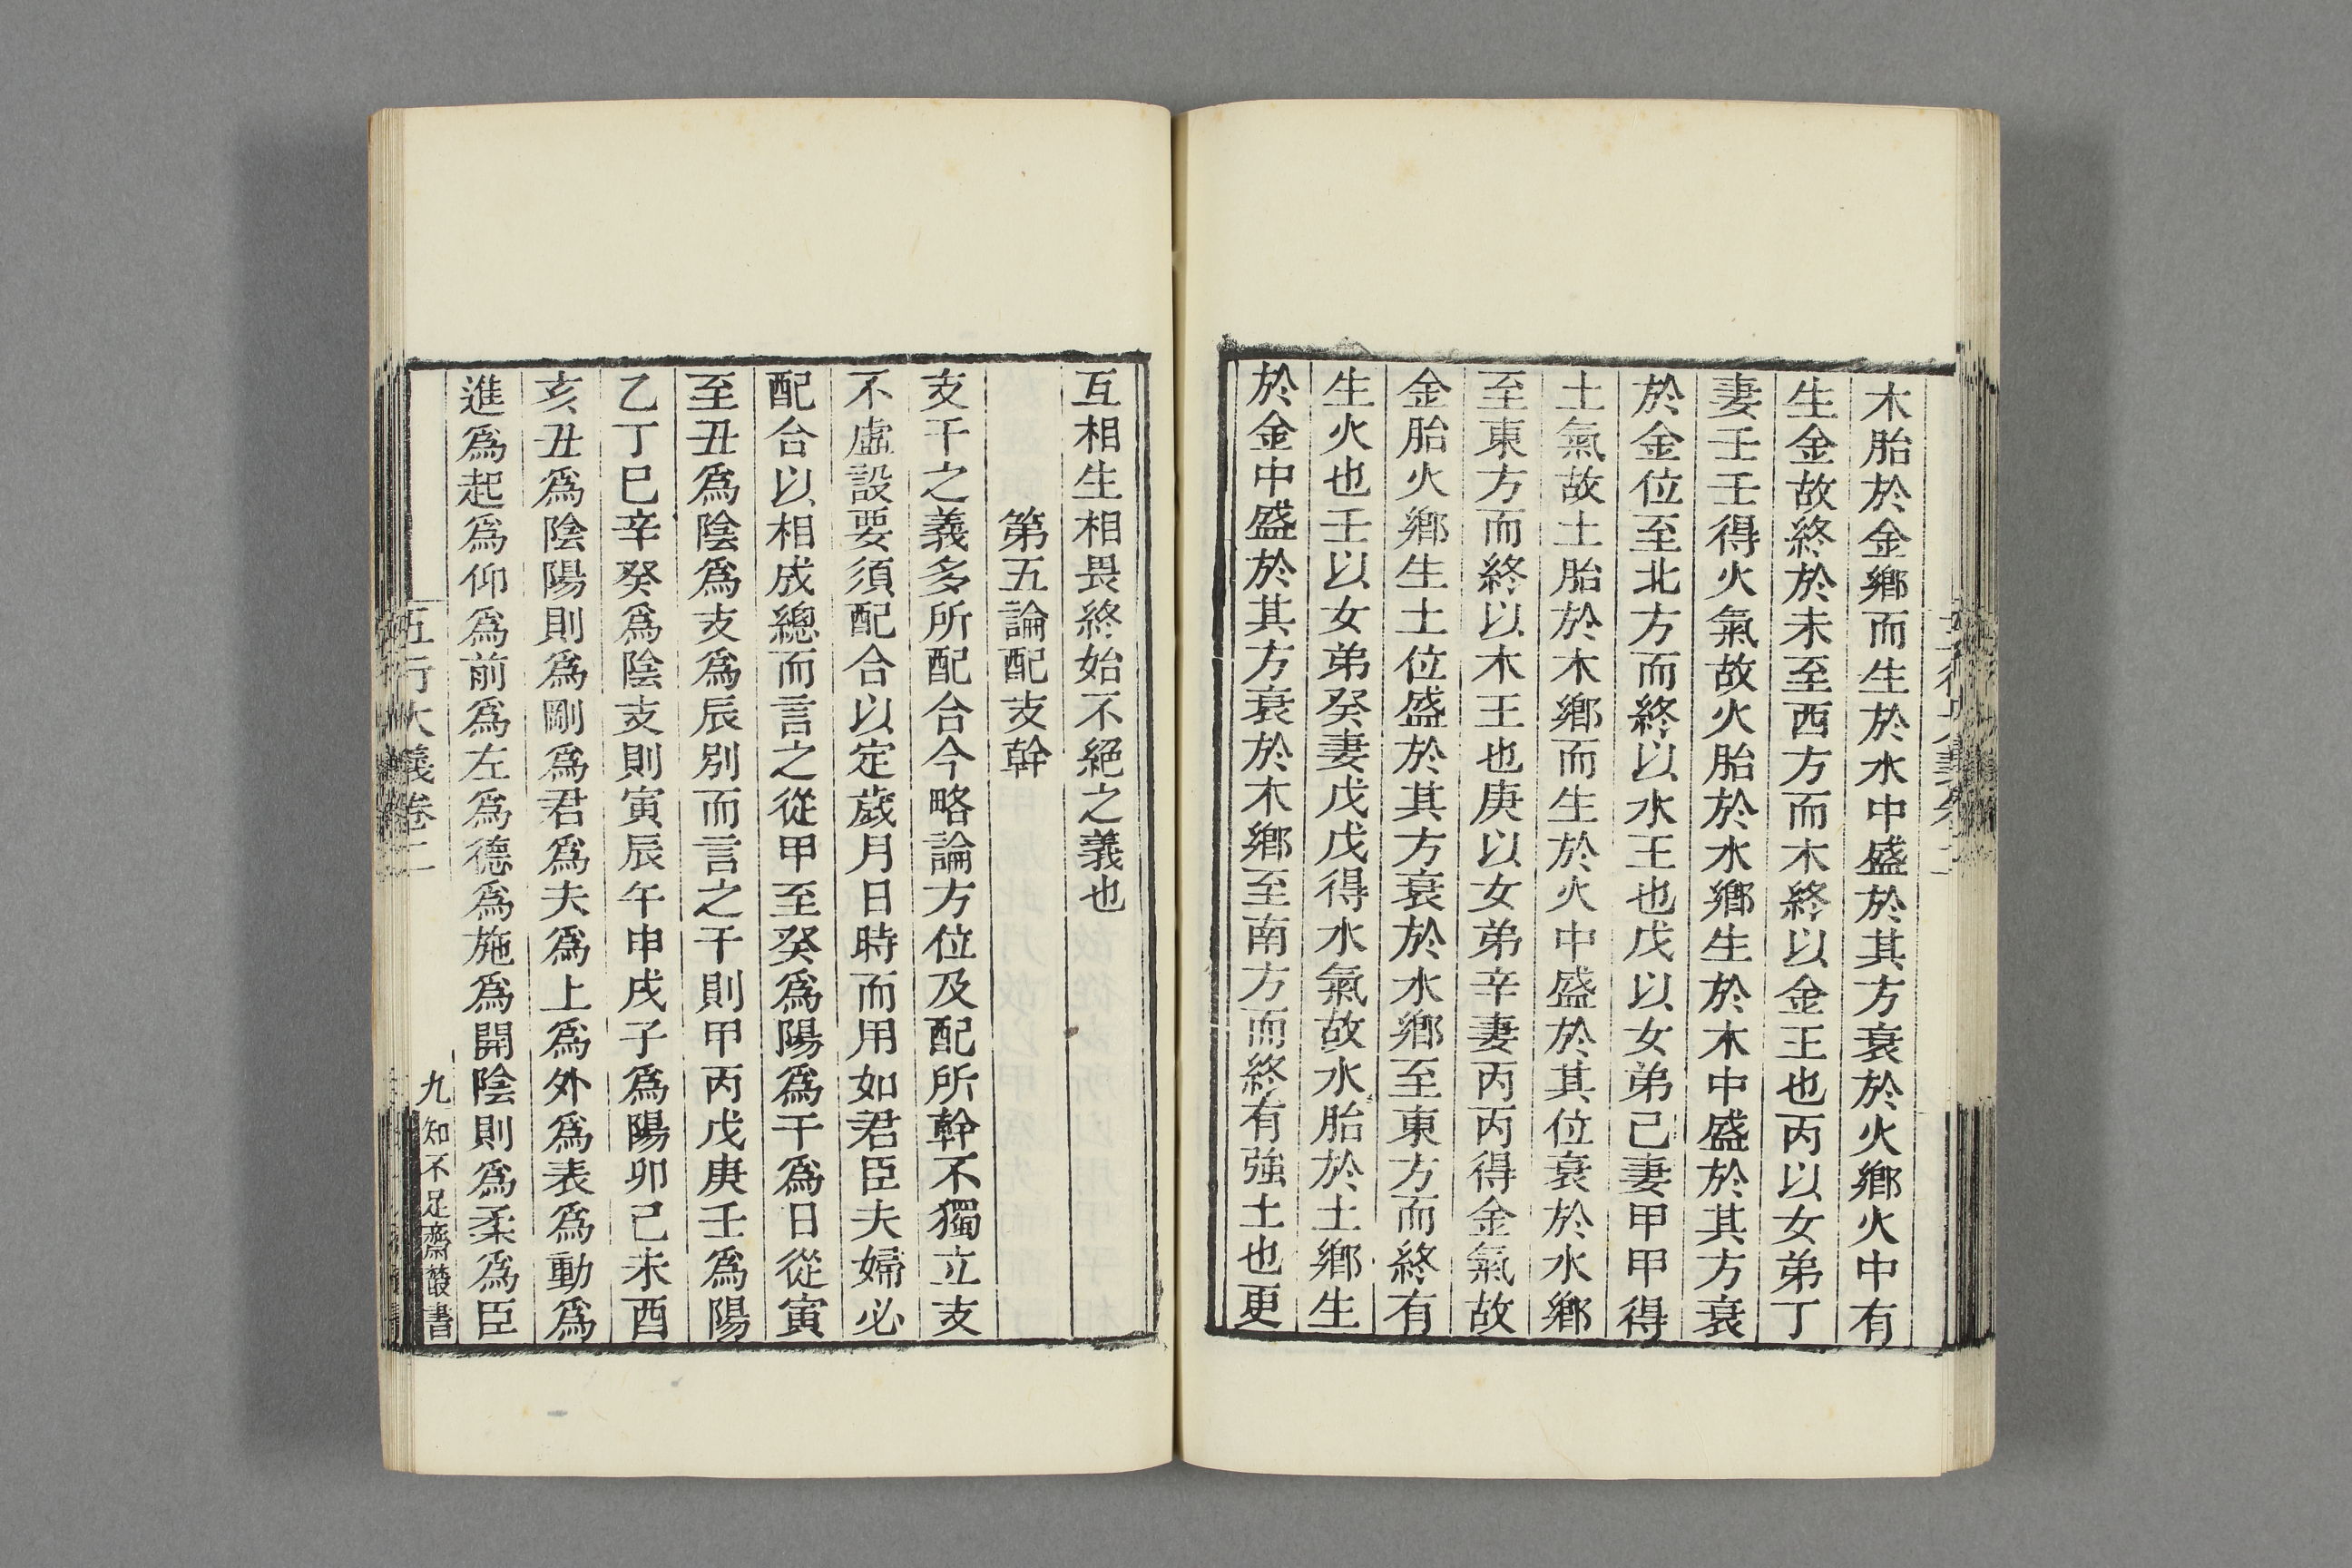 木胎於金鄉而生於水中盛於其方衰於火鄉火中有
生金故終於未至西方而木終以金王也丙以女弟丁
妻壬壬得火氣故火胎於水鄉生於木中盛於其方衰
於金位至北方而終以水王也戊以女弟己妻甲甲得
土氣故土胎於木鄉而生於火中盛於其位衰於水鄉
至東方而終以木王也庚以女弟辛妻丙丙得金氣故
金胎火鄉生土位盛於其方衰於水鄉至東方而終有
生火也壬以女弟癸妻戊戊得水氣故水胎於土鄉生
於金中盛於其方衰於木鄉至南方而終有強土也更
互相生相畏終始不絕之義也
第五論配支幹
支干之義多所配合今略論方位及配所幹不獨立支
不虛設要須配合以定歲月日時而用如君臣夫婦必
配合以相成總而言之從甲至癸爲陽爲干爲日從寅
至丑爲陰爲支爲辰別而言之干則甲丙戊庚壬爲陽
乙丁巳辛癸爲陰支則寅辰午申戌子爲陽卯己未酉
亥丑爲陰陽則爲剛爲君爲夫爲上爲外爲表爲動爲
進爲起爲仰爲前爲左爲德爲施爲開陰則爲柔爲臣
五行大義卷二
九
知不足齋叢書